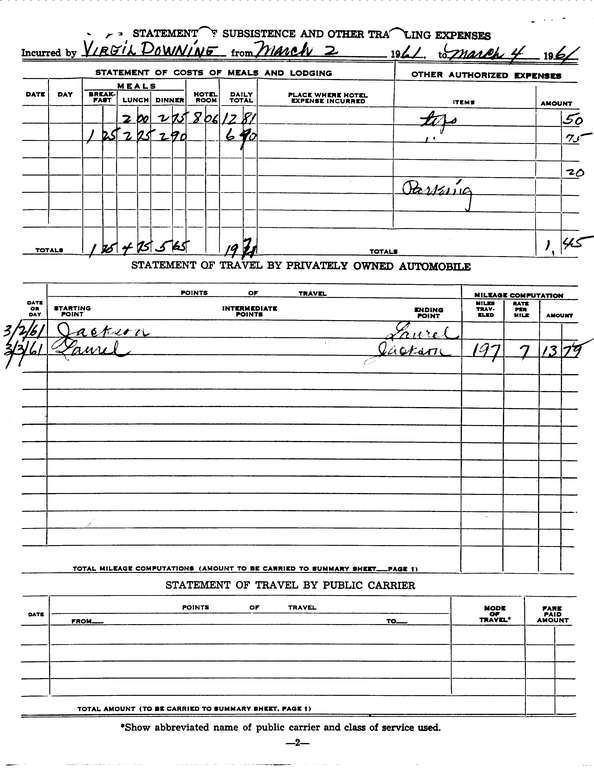 STATEMENT OF SUBSISTENCE AND OTHER TRA LING EXPENSES
Incurred by VIRGIL DOWNING from March 2 1961, to March 4 1961
STATEMENT OF COSTS OF MEALS AND LODGING OTHER AUTHORIZED EXPENSES
DATE DAY MEALS BREAK-FAST LUNCH DINNER HOTEL ROOM DAILY TOTAL PLACE WHERE HOTEL EXPENSE INCURRED ITEMS AMOUNT
2 00 2 75 8 06 12 81 50
1 25 2 75 2 90 6 90 " 75
20
Parking
TOTALS 1 25 4 75 5 65 19 71 TOTALS 1,45
STATEMENT OF TRAVEL BY PRIVATELY OWNED AUTOMOBILE
POINTS OF TRAVEL MILEAGE COMPUTATION
DATE OR DAY STARTING POINT INTERMEDIATE POINTS ENDING POINT MILES TRAV-ELED RATE PER MILE AMOUNT
3/2/61 Jackson Laurel
3/3/61 Laurel Jackson 197 7 13 79
TOTAL MILEAGE COMPUTATIONS (AMOUNT TO BE CARRIED TO SUMMARY SHEET PAGE 1)
STATEMENT OF TRAVEL BY PUBLIC CARRIER
DATE POINTS OF TRAVEL MODE OF TRAVEL* FARE PAID AMOUNT
FROM TO
TOTAL AMOUNT (TO BE CARRIED TO SUMMARY SHEET, PAGE 1)
*Show abbreviated name of public carrier and class of service used.
—2—